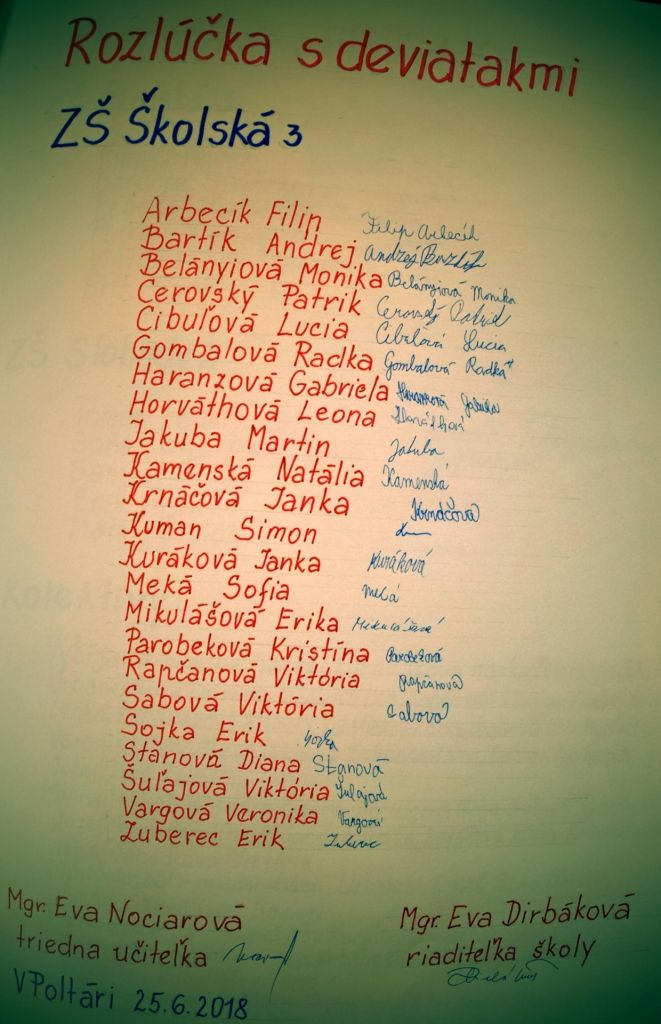 Rozlúčka s deviatakmi
ZŠ Školská 3
Arbecík Filip Filip Arbecík
Bartík Andrej Andrej Bartík
Belányiová Monika Belányiová Monika
Cerovský Patrik Cerovský Patrik
Cibuľová Lucia Cibuľová Lucia
Gombalová Radka Gombalová Radka
Haranzová Gabriela Haranzová Gabriela
Horváthová Leona Horváthová
Jakuba Martin Jakuba
Kamenská Natália Kamenská
Krnáčová Janka Krnáčová
Kuman Simon
Kuráková Janka Kuráková
Meká Sofia Meká
Mikulášová Erika Mikulášová
Parobeková Kristína Parobeková
Rapčanová Viktória Rapčanová
Sabová Viktória Sabová
Sojka Erik Sojka
Stanová Diana Stanová
Šuľajová Viktória Šuľajová
Vargová Veronika Vargová
Zuberec Erik Zuberec
Mgr. Eva Nociarová
triedna učiteľka
V Poltári 25.6.2018
Mgr. Eva Dirbáková
riaditeľka školy